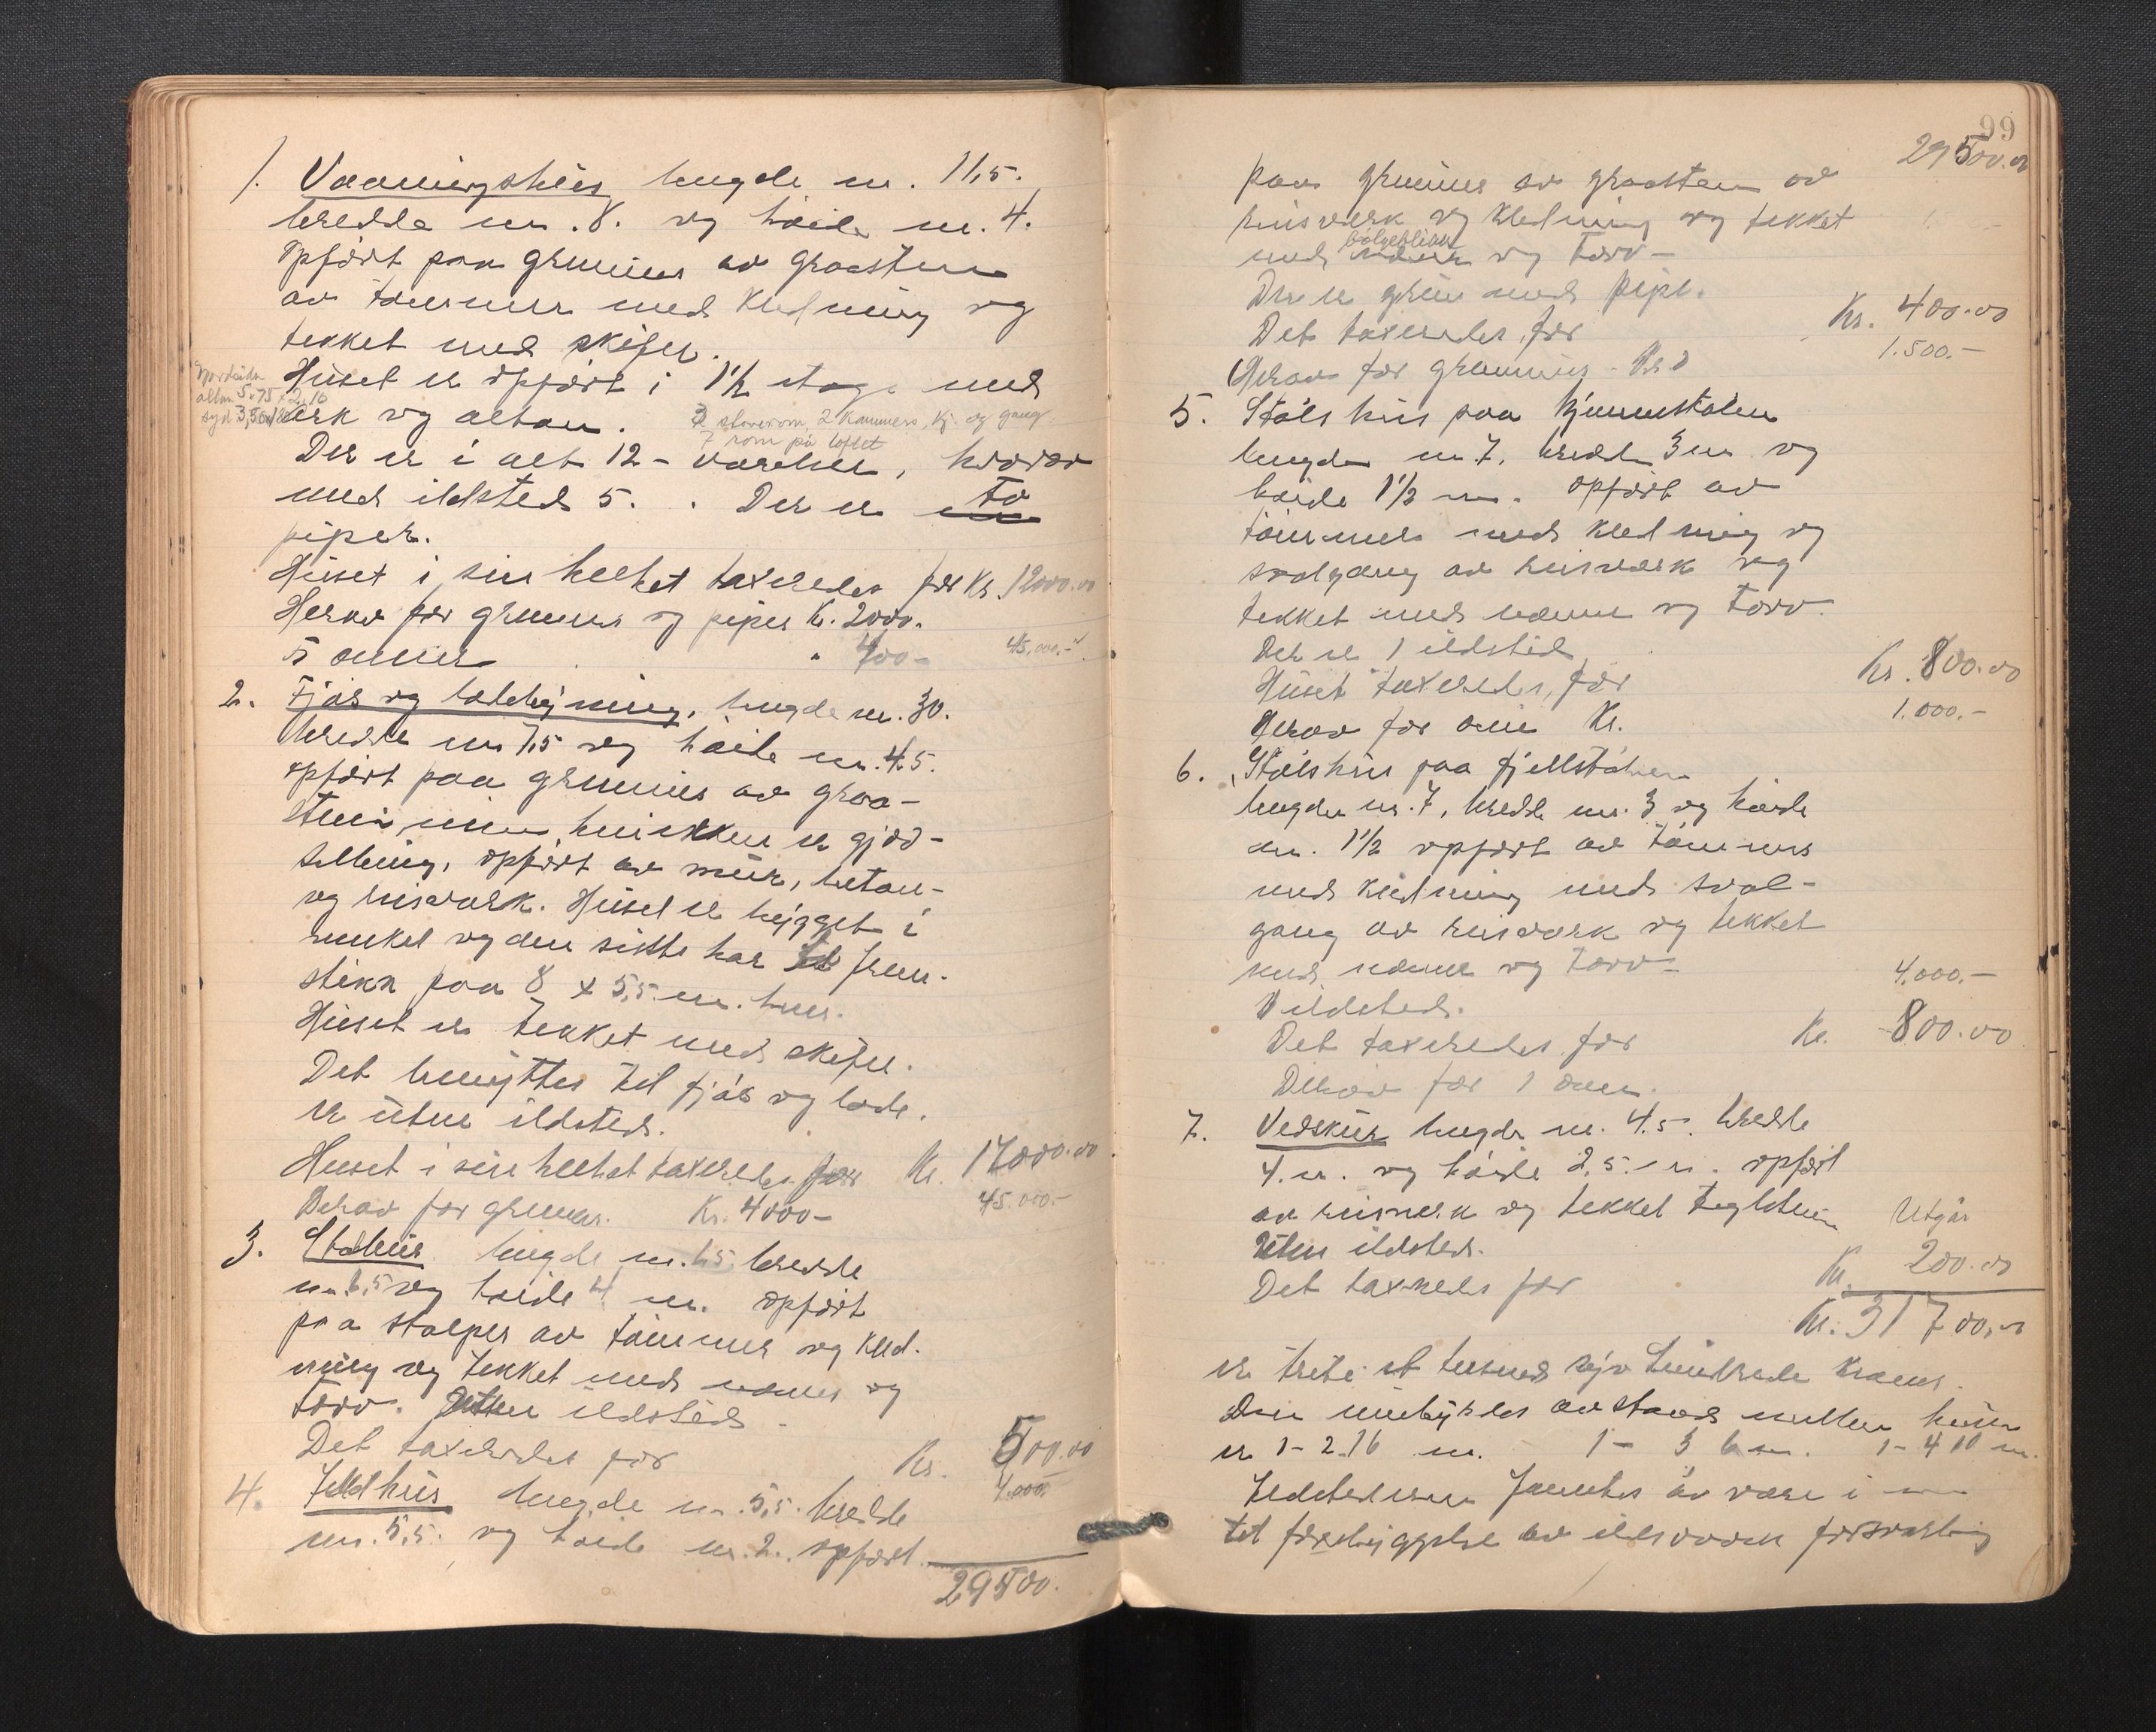 1. Vaaningshus, lengde m. 11,5.
bredde m. 8. og høide m. 4.
opført paa grunmur av graasten
av tømmer med kledning og
tekket med skifer.
Huset er opført i 1½ etage med
ark og altan. 2 stoverom, 2 kammers, kj. og gang
7 rom på loftet
Der er i alt 12 - værelser, hvorav
med ildsted 5. . Der er to
piper.
Huset i sin helhet taxeredes for Kr. 12000.00
Herav for grunmur og piper Kr. 2000.
5 ovner " 400- 45.000.-
2. Fjøs og ladebygning, lengde m. 30.
bredde m 7,5 og høide m. 4.5.
opført paa grunmur av graa-
sten, innen hvilken er gjød-
selbing, opført av mur, betong
og bisverk. Huset er bygget i
vinkel og den siste har et frem-
stikk paa 8 x 5,5 m. bur.
Huset er tekket med skifer.
Det benyttes til fjøs og lade.
er uten ildsted.
Huset i sin helhet taxeredes for Kr. 17000.00
Derav for grunmur. Kr. 4000- 45.000.-
3. Stabur lengde m. 6.5 bredde
m. 6,5 og høide 4 m. opført
paa stolper av tømmer og kled-
ning og tekket med næver og
torv. Uten ildsted -
Det taxeredes for Kr. 500.00
4. Ildhus lengde m. 5,5. bredde 4.000.-
m. 5,5. og høide m. 2. opført
29500.
99
29500.00
paa grunmur av graasten av
bisverk og kledning og tekket
med bølgeblikk og torv -
Der er grue med pipe.
Det taxeredes for Kr. 400.00
Herav for grunmur - Kr. 1.500.-
5. Støls hus paa Hjemmstølen
lengde m 7, bredde 3 m og
høide 1½ m. opført av
tømmer med kledning og
svalgang av bisverk og
tekket med næver og torv.
Der er 1 ildsted
Huset taxeredes for Kr. 800.00
Herav for ovn Kr. 1.000.-
6. Stølshus paa fjellstølen
lengde m. 7, bredde m. 3 og høide
m. 1½ opført av tømmer
med kledning med sval-
gang av bisverk og tekket
med næver og torv - 4.000.-
1 ildsted.
Det taxeredes for Kr. 800.00
Derav for 1 ovn.
7. Vedskur lengde m. 4.5. bredde
4. m. og høide 2,5. m. opført
av bisverk og tekket teglsten Utgår
Uten ildsted.
Det taxeredes for Kr. 200.00
Kr. 31700,00
er trete et tusend syv hundrede kroner.
Den innbyrdes avstand mellem husene
er 1 - 2 16 m. 1 - 3 6 m. 1 - 4 10 m.
Ildstederne fantes av være i
til forebyggelse av ildsvaade forsvarlig